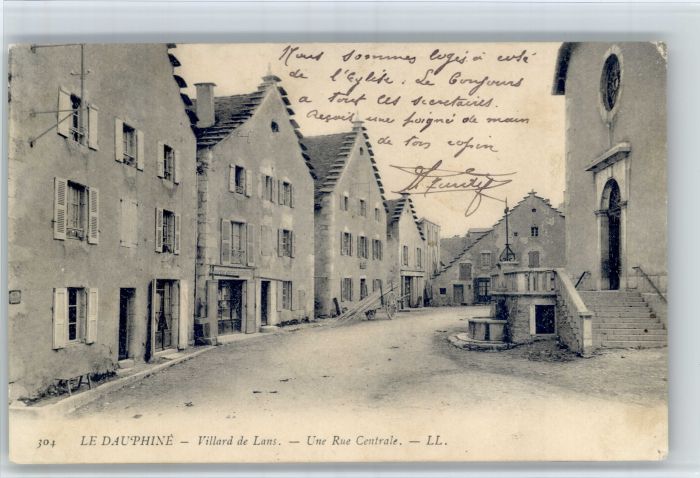 Nous sommes logés à coté
de l'Eglise. Le Bonjours
a tout les secretaires.
Reçoit une poigné de main
de ton copin
304 LE DAUPHINÉ — Villard de Lans. — Une Rue Centrale. — LL.